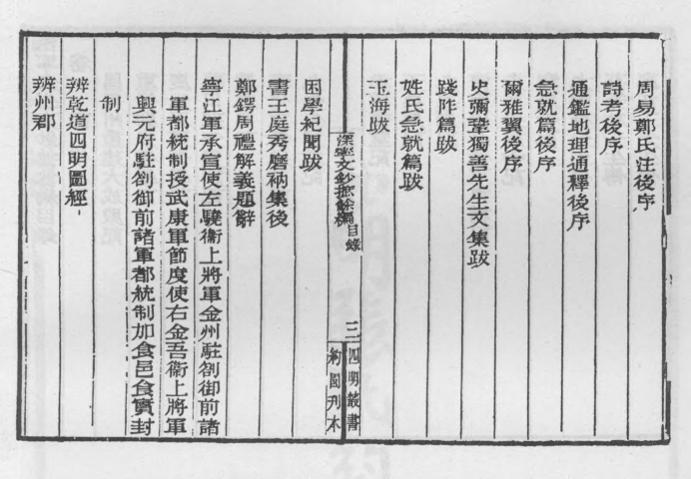 周易鄭氏注後序
詩考後序
通鑑地理通釋後序
急就篇後序
爾雅翼後序
史彌鞏獨善先生文集跋
踐阼篇跋
姓氏急就篇跋
玉海跋
深寧文鈔摭餘編目錄
三
四明叢書
約園刊本
困學紀聞跋
書王庭秀磨衲集後
鄭鍔周禮解義題辭
寧江軍承宣使左驍衞上將軍金州駐劄御前諸
軍都統制授武康軍節度使右金吾衞上將軍
興元府駐劄御前諸軍都統制加食邑食實封
制
辨乾道四明圖經
辨州郡